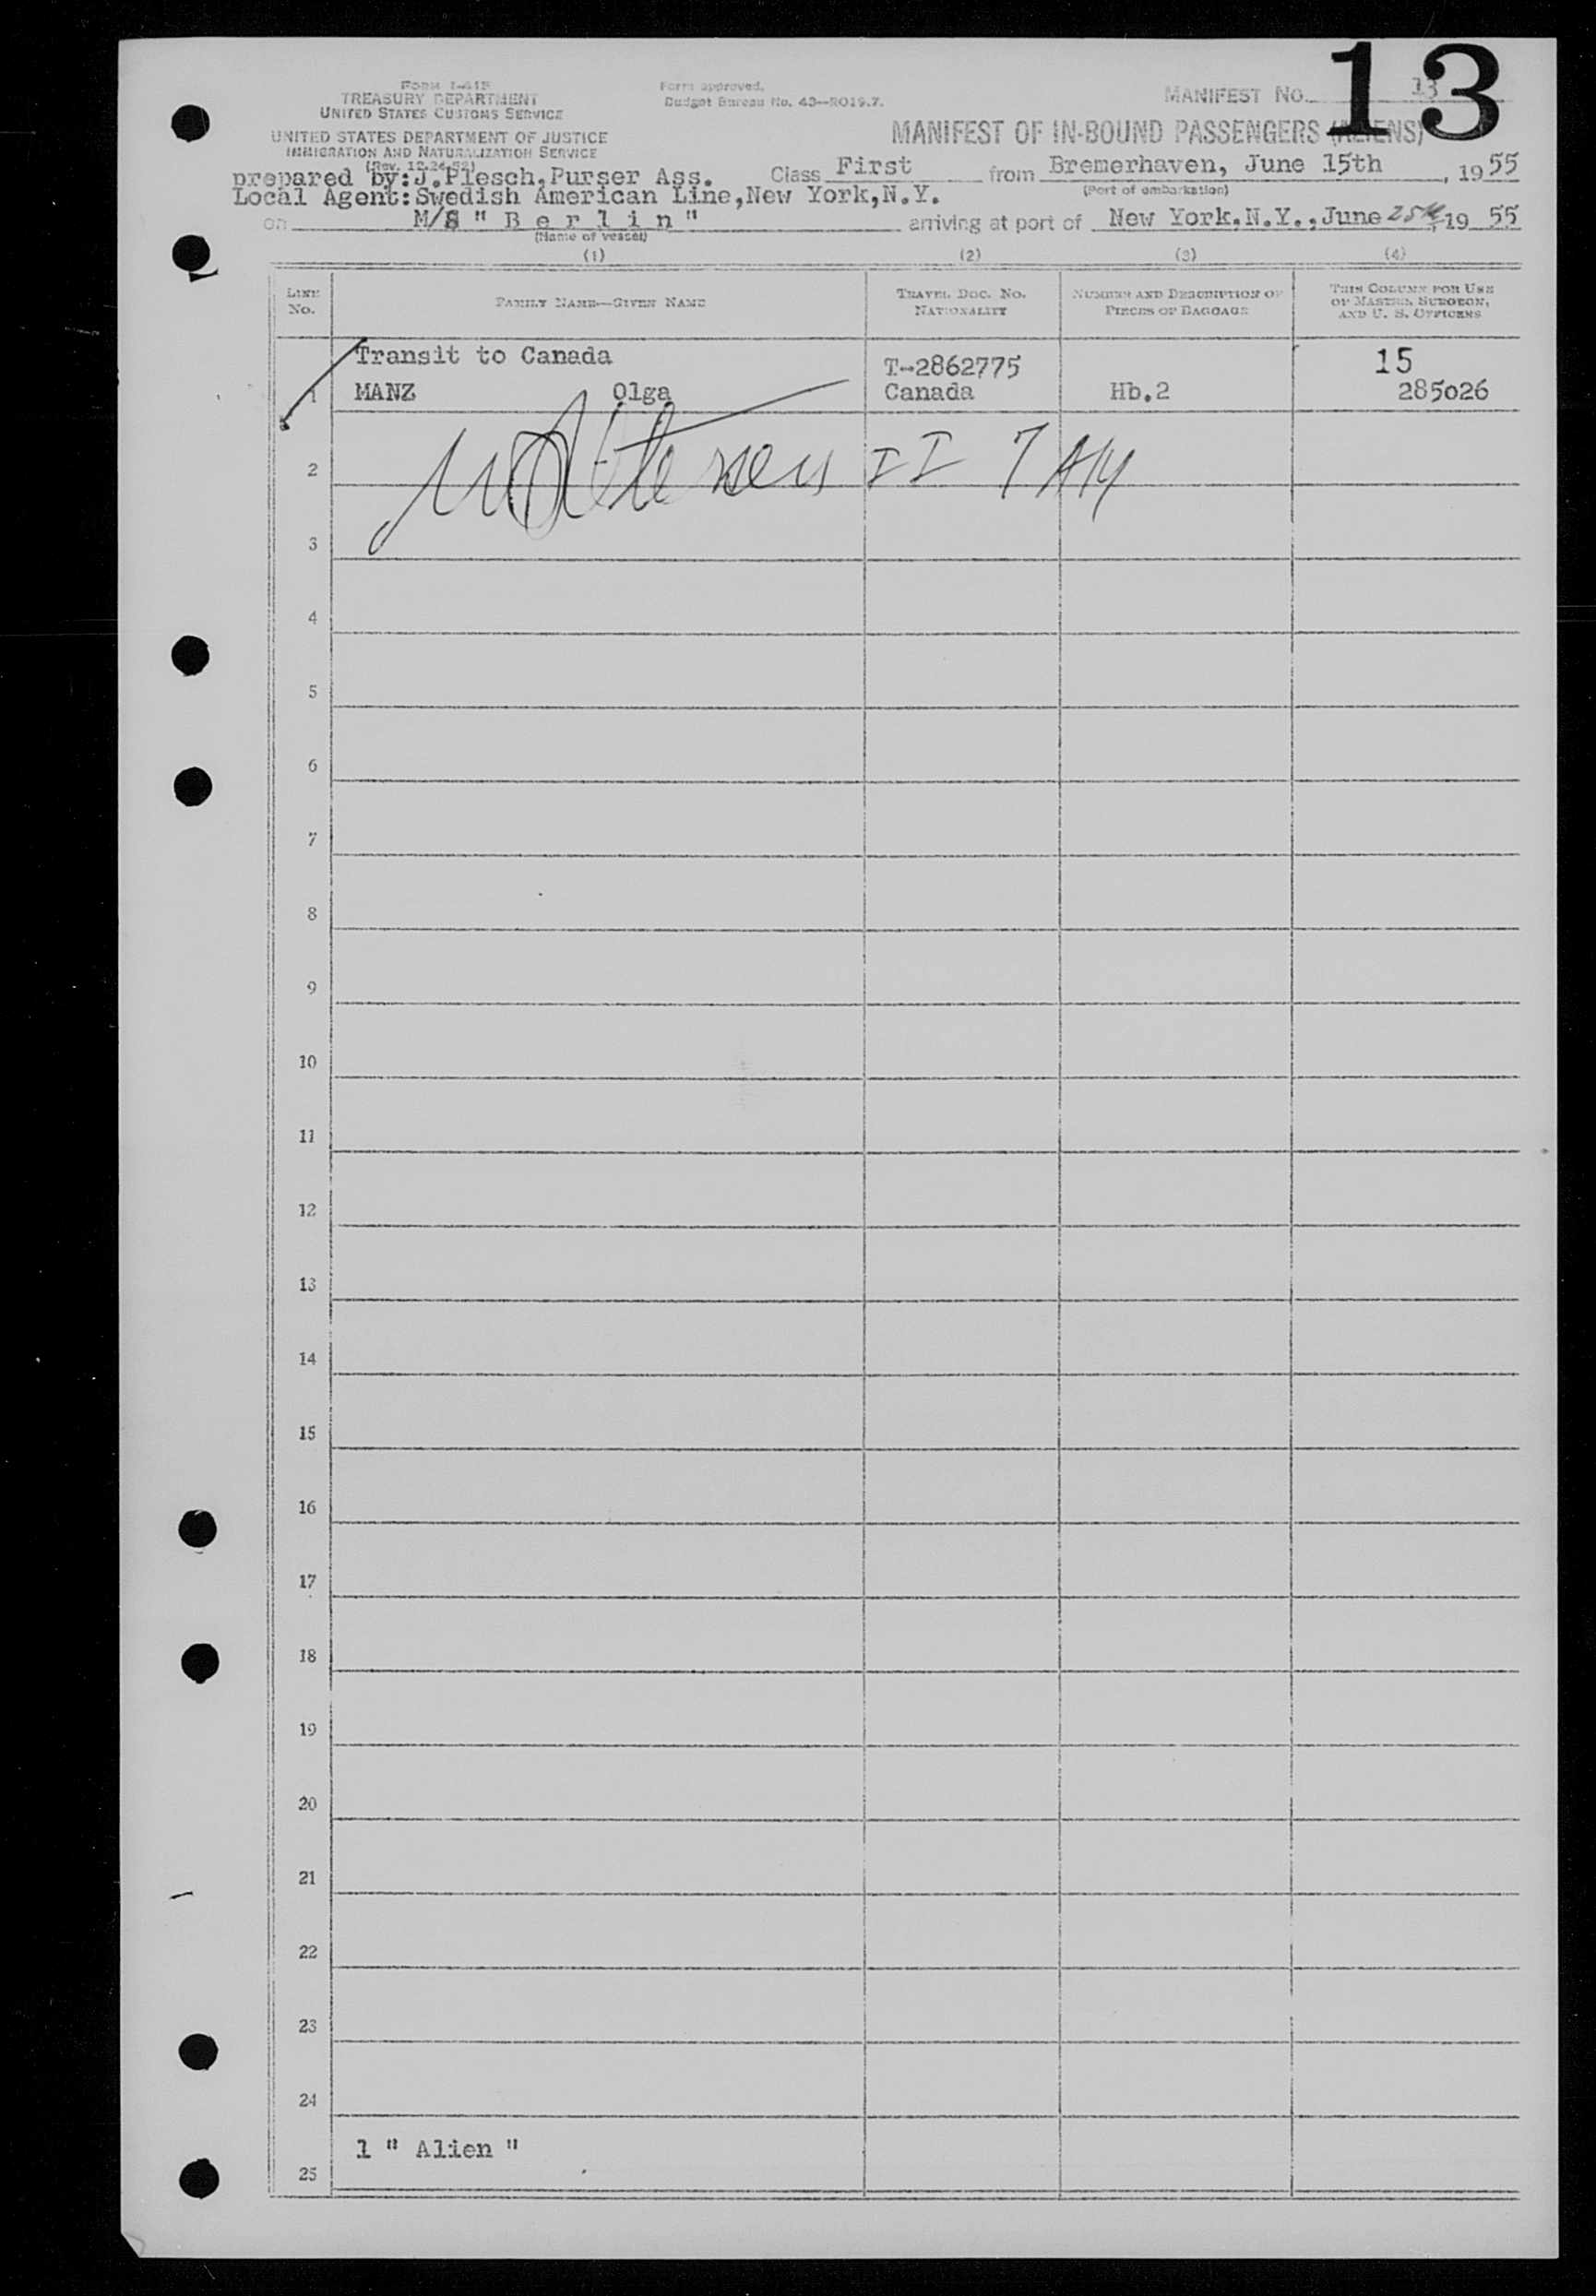 13
FORM I-415
TREASURY DEPARTMENT
UNITED STATES CUSTOMS SERVICE
UNITED STATES DEPARTMENT OF JUSTICE
IMMIGRATION AND NATURALIZATION SERVICE
(Rev. 12-24-52)
Form approved.
Budget Bureau No. 43—R019.7.
MANIFEST NO. 13
MANIFEST OF IN-BOUND PASSENGERS (ALIENS)
prepared by:J.Plesch,Purser Ass. Class First from Bremerhaven, June 15th, 1955
(Port of embarkation)
Local Agent:Swedish American Line,New York,N.Y.
on M/S " B e r l i n " arriving at port of New York,N.Y.,June 25th, 19 55
(Name of vessel)
(1) (2) (3) (4)
LINE NO. FAMILY NAME—GIVEN NAME TRAVEL DOC. NO. NATIONALITY NUMBER AND DESCRIPTION OF PIECES OF BAGGAGE THIS COLUMN FOR USE OF MASTER, SURGEON, AND U. S. OFFICERS
Transit to Canada T-2862775 15
1 MANZ Olga Canada Hb.2 285026
2 II 7
3
4
5
6
7
8
9
10
11
12
13
14
15
16
17
18
19
20
21
22
23
24
1 " Alien "
25